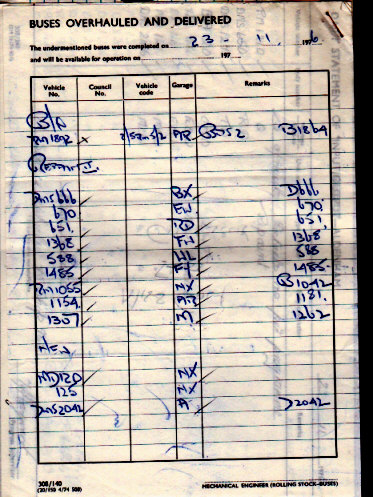 BUSES OVERHAULED AND DELIVERED
The undermentioned buses were completed on 23 - 11. 1976
and will be available for operation on 197
Vehicle No. Council No. Vehicle code Garage Remarks
RM1892 AR B1864
DMS666 BX D666
670 670
651 RD 651
1368 1368
588 HL 588
1485 1485
RM1055 NX B1042
1154 AR 1181
1307 M 1262
NEW
MD120 NX
125 NX
DMS2042 A D2042
308/140
(20/F59 4/74 508)
MECHANICAL ENGINEER (ROLLING STOCK—BUSES)